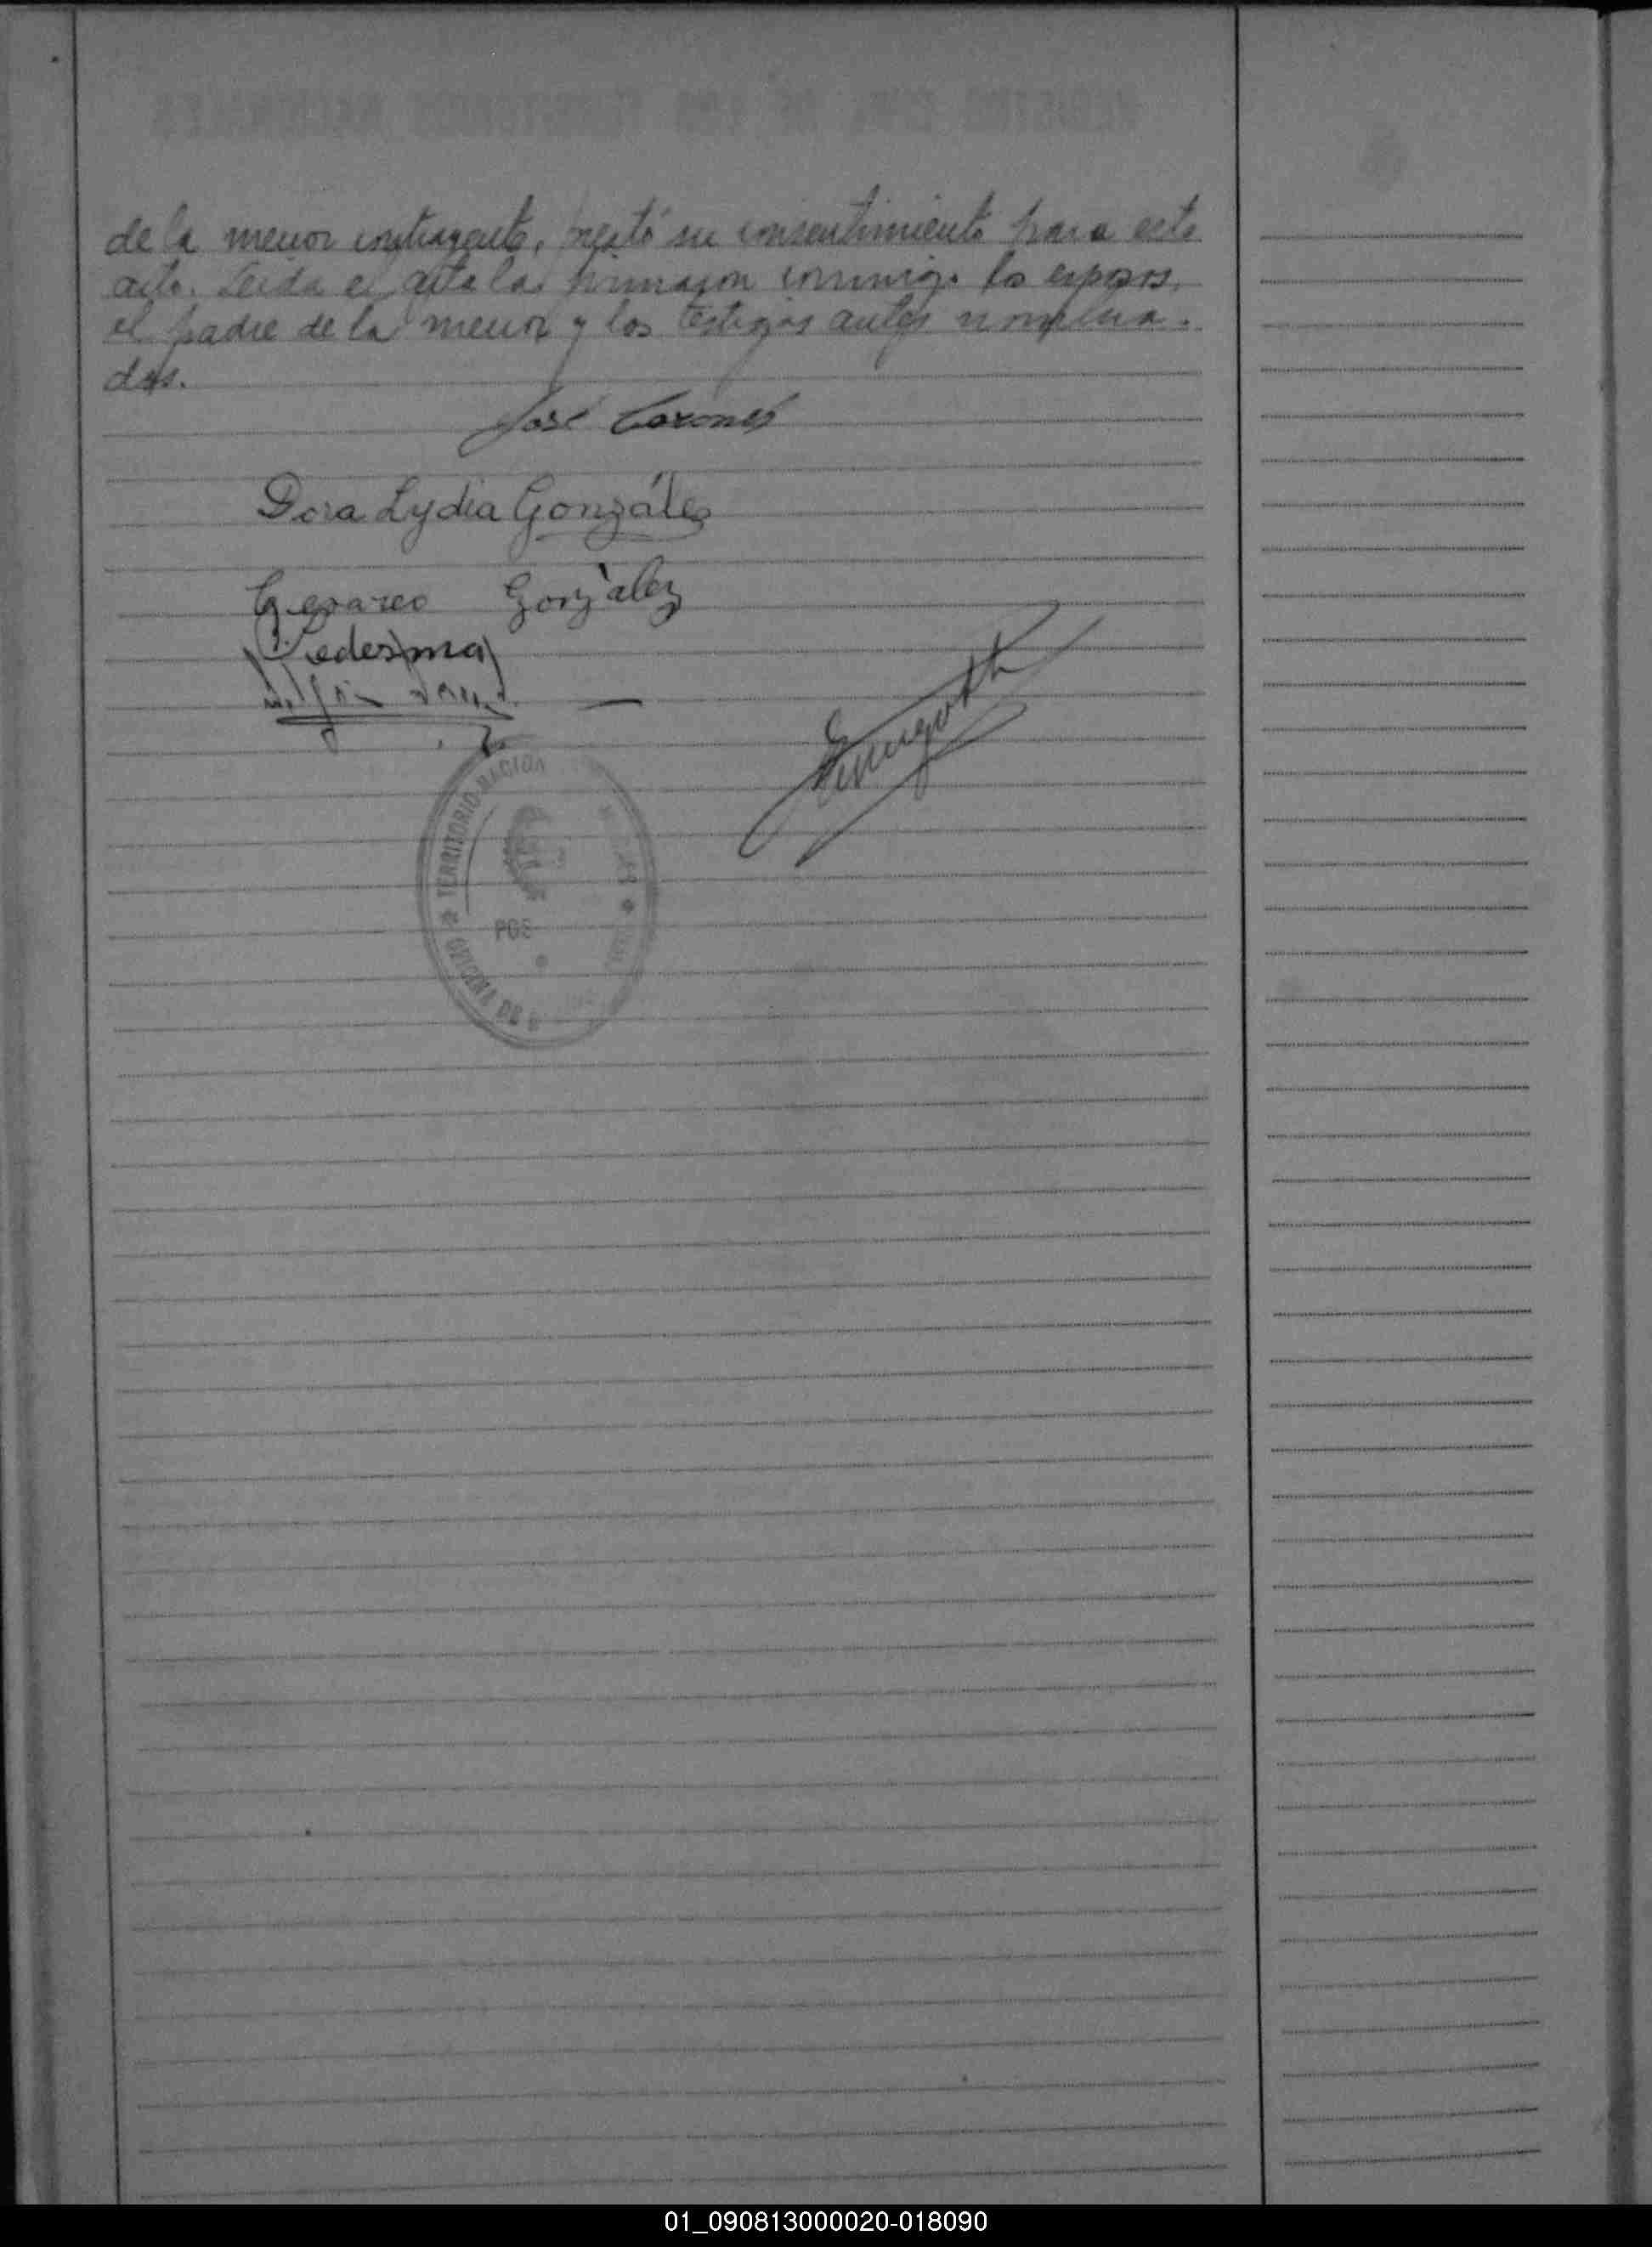 de la menor contrayente, prestó su consentimiento para este
acto. Leida el acta la firmaron conmigo los esposos,
el padre de la menor y los testigos antes nombra-
dos.
José
Dora Lydia González
González
Ledesma
TERRITORIO NACIONA
OFICINA DE
01_090813000020-018090